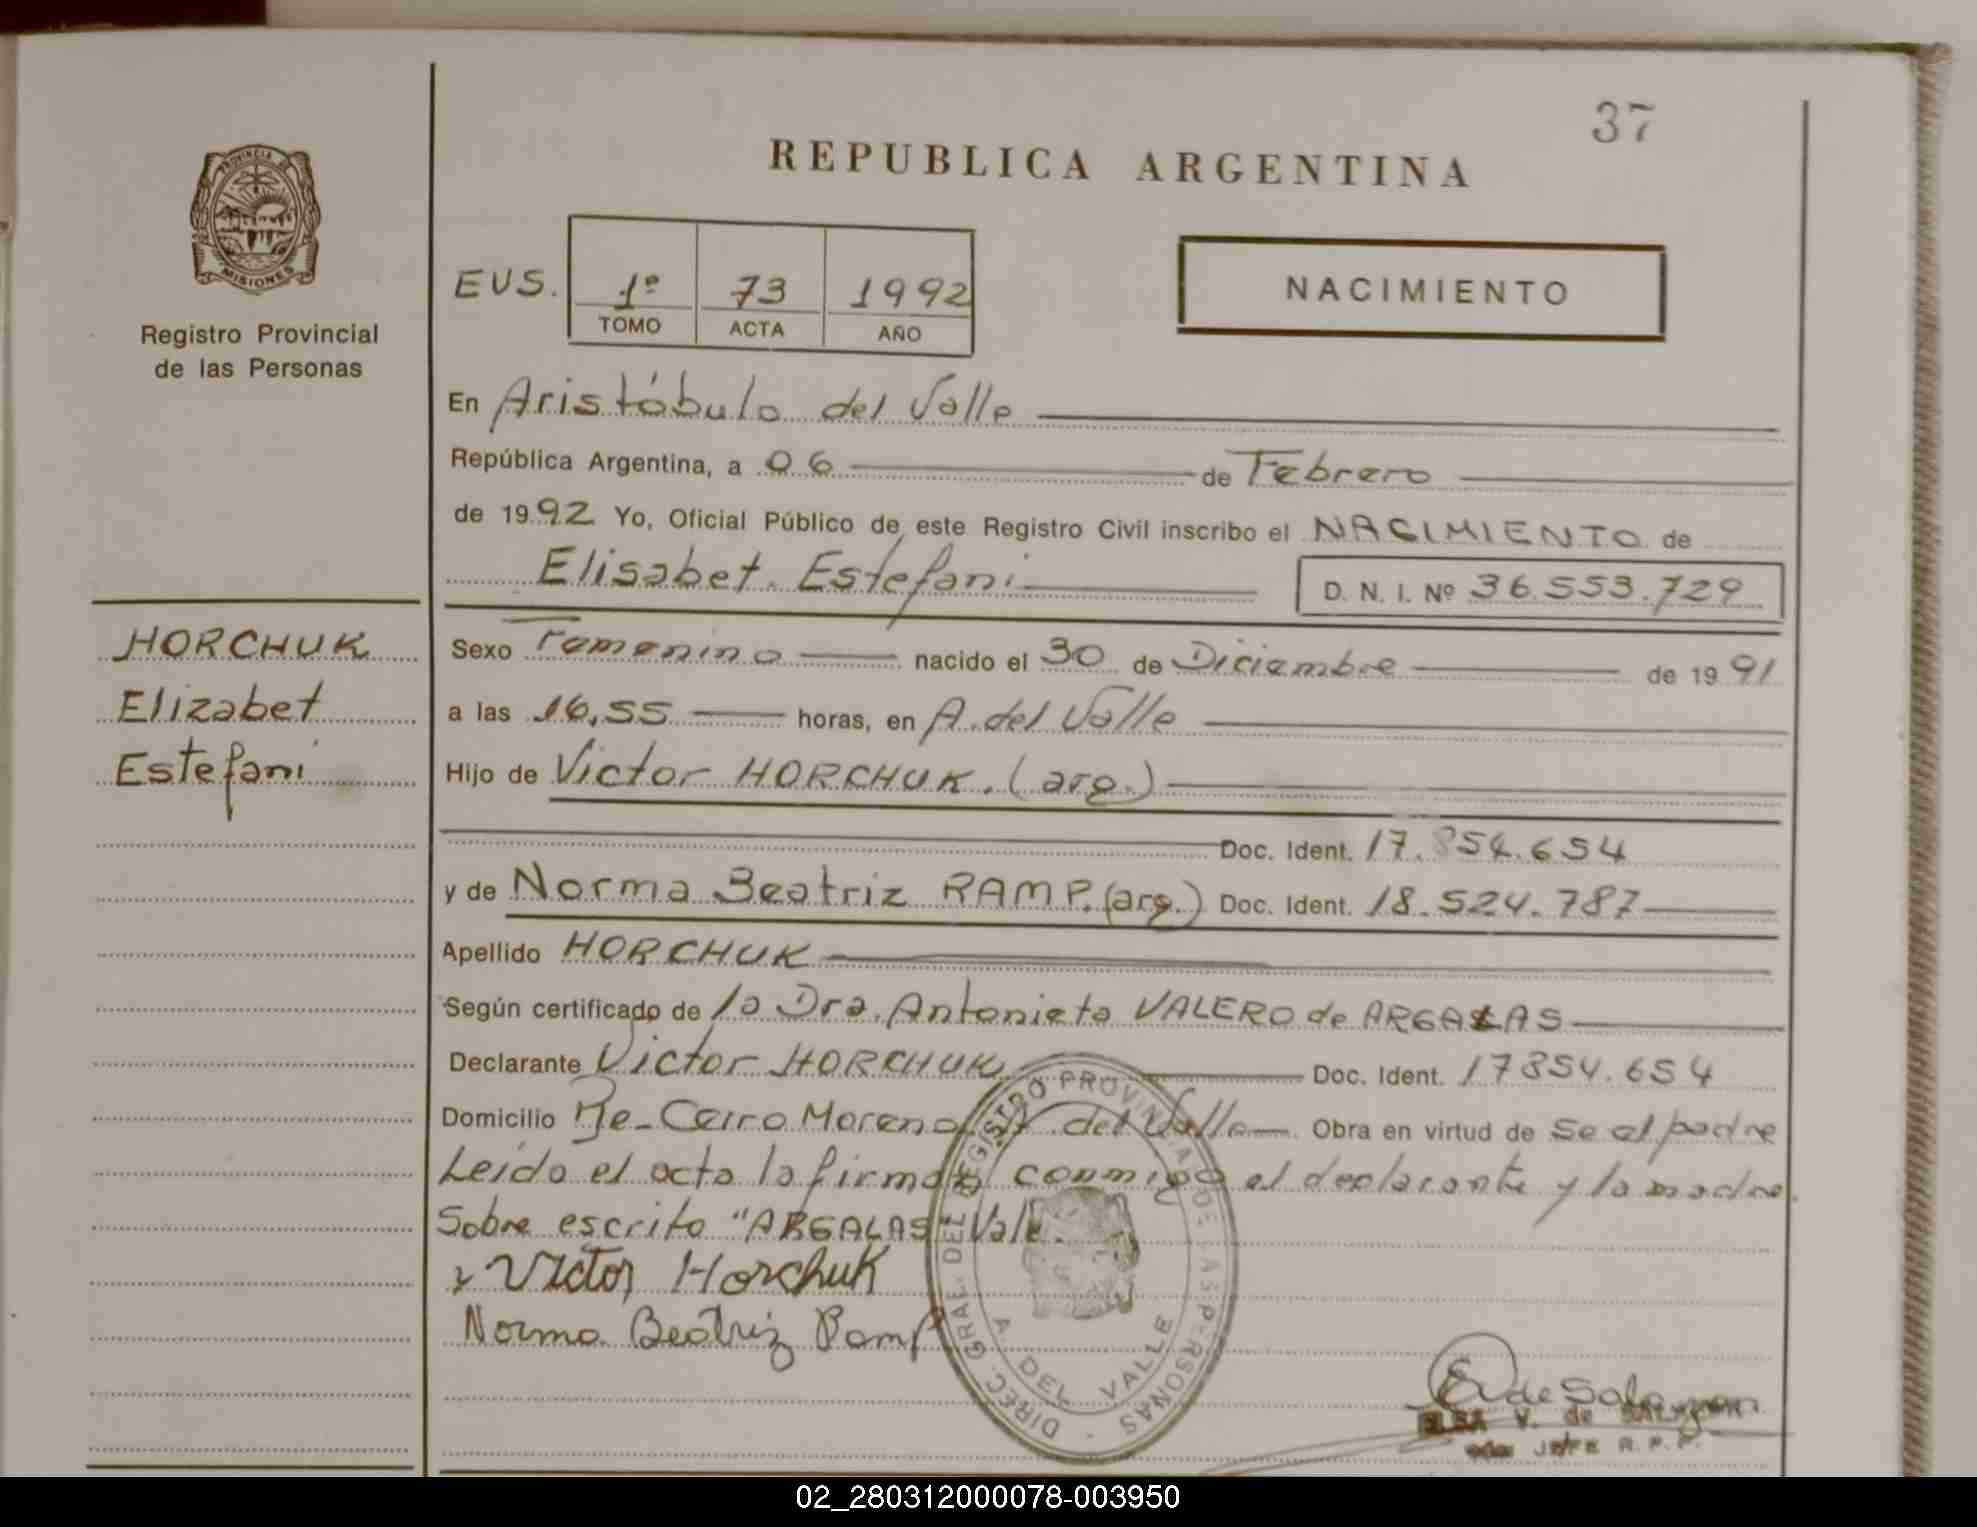 37
REPUBLICA ARGENTINA
PROVINCIA DE
MISIONES
Registro Provincial
de las Personas
EUS. 1º 73 1992
TOMO ACTA AÑO
NACIMIENTO
En Aristóbulo del Valle
República Argentina, a 06 de Febrero
de 1992 Yo, Oficial Público de este Registro Civil inscribo el NACIMIENTO de
Elisabet Estefani D. N. I. Nº 36.553.729
HORCHUK
Elizabet
Estefani
Sexo Femenino nacido el 30 de Diciembre de 1991
a las 16,55 horas, en A. del Valle
Hijo de Victor HORCHUK. (arg.)
Doc. Ident. 17.854.654
y de Norma Beatriz RAMP. (arg.) Doc. Ident. 18.524.787
Apellido HORCHUK
Según certificado de la Dra. Antonieta VALERO de ARGALAS
Declarante Victor HORCHUK Doc. Ident. 17854.654
Domicilio Cerro Moreno del Valle Obra en virtud de Se el padre
Leído el acta la firman conmigo el declarante y la madre.
Sobre escrito "ARGALAS" Vale.
Victor Horchuk
Norma Beatriz Ramp
DIREC. GRAL. DEL REGISTRO PROVINCIAL DE LAS PERSONAS
A. DEL VALLE
E V de Salazar
ELSA V. de SALAZAR
JEFE R. P. P.
02_280312000078-003950